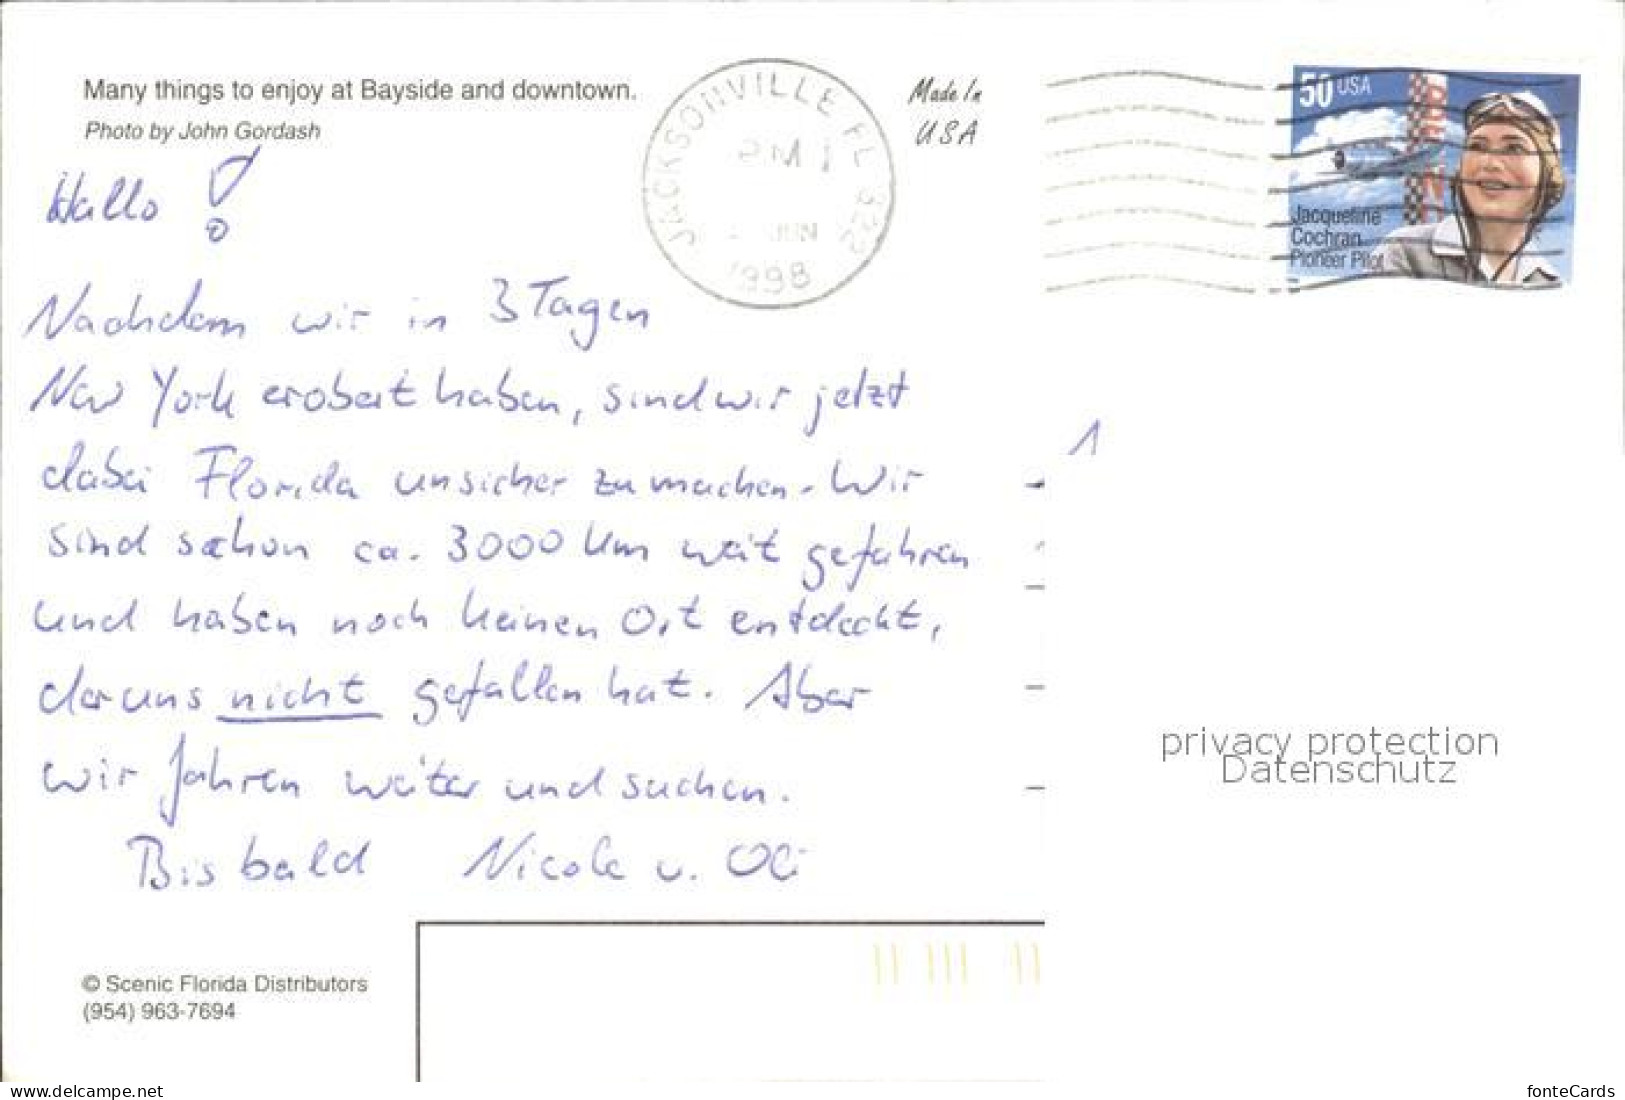 Many things to enjoy at Bayside and downtown.
Photo by John Gordash
Made In
USA
JACKSONVILLE FL 322
PM 1
JUN
1998
50 USA
Jacqueline
Cochran
Pioneer Pilot
Hallo !
Nachdem wir in 3 Tagen
New York erobert haben, sind wir jetzt
dabei Florida unsicher zu machen. Wir
sind schon ca. 3000 km weit gefahren
und haben noch keinen Ort entdeckt,
der uns nicht gefallen hat. Aber
wir fahren weiter und suchen.
Bis bald Nicole u. Oli
privacy protection
Datenschutz
© Scenic Florida Distributors
(954) 963-7694
www.delcampe.net
fonteCards